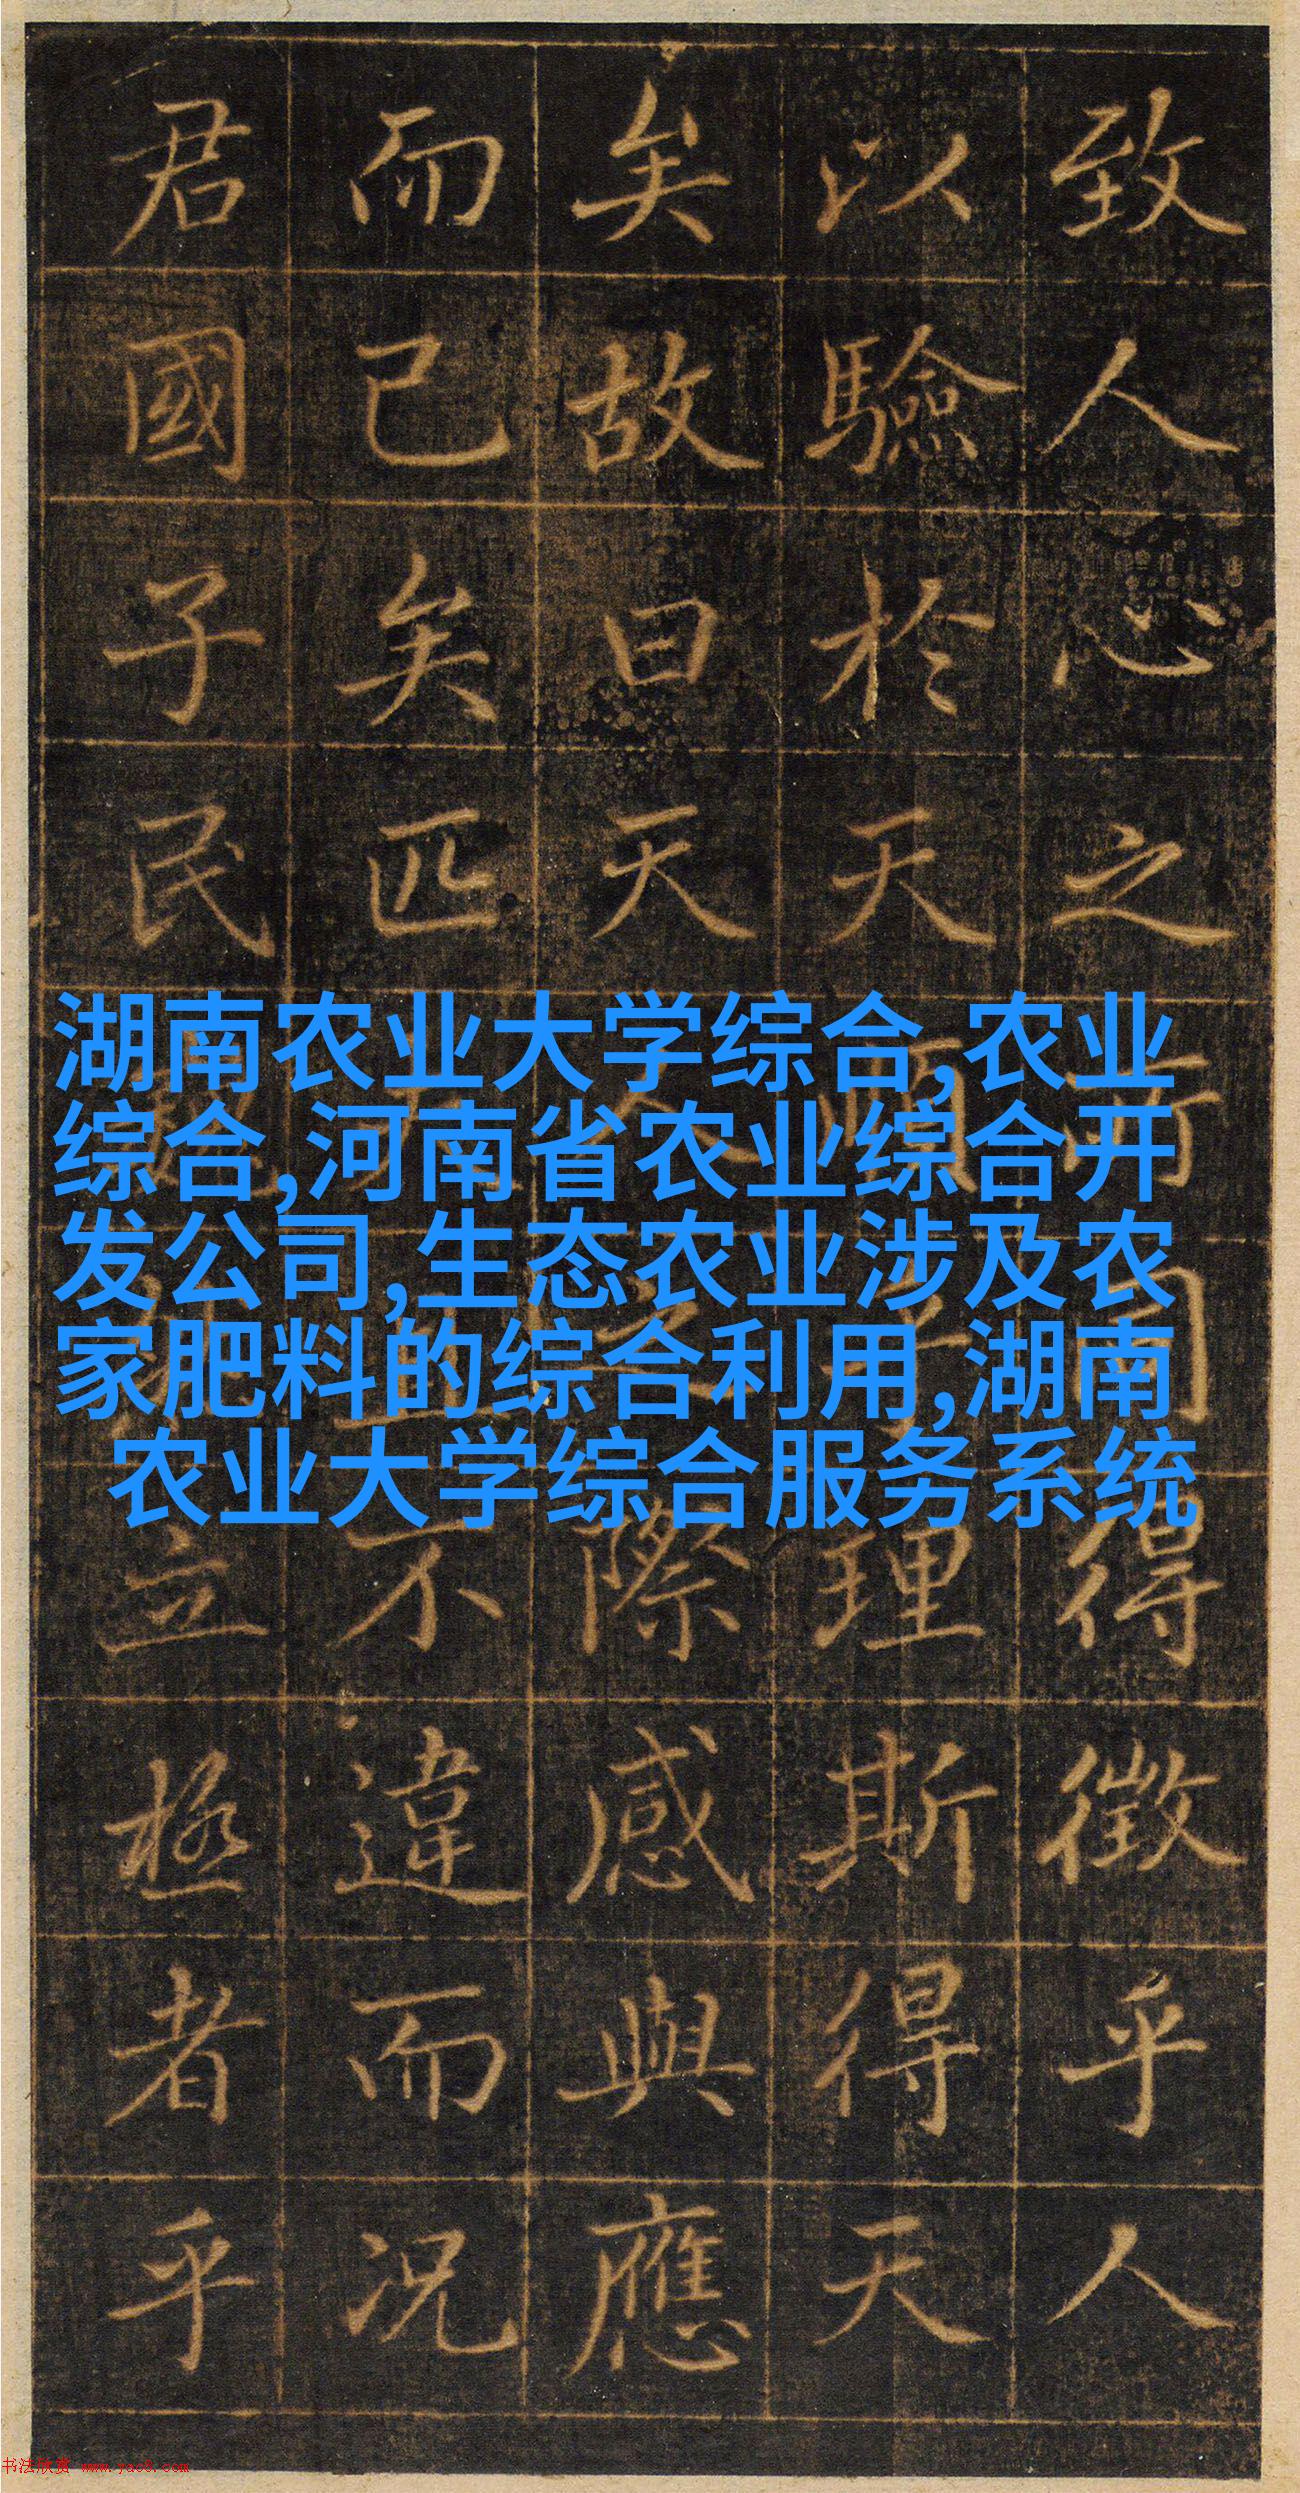 致人心之所同得徵乎人
以驗於天順理斯得天
矣故曰天人之際感與應
而已矣匹夫且不違而況
君國子民立極者乎
湖南农业大学综合,农业
综合,河南省农业综合开
发公司,生态农业涉及农
家肥料的综合利用,湖南
农业大学综合服务系统
书法欣赏 www.yac8.com